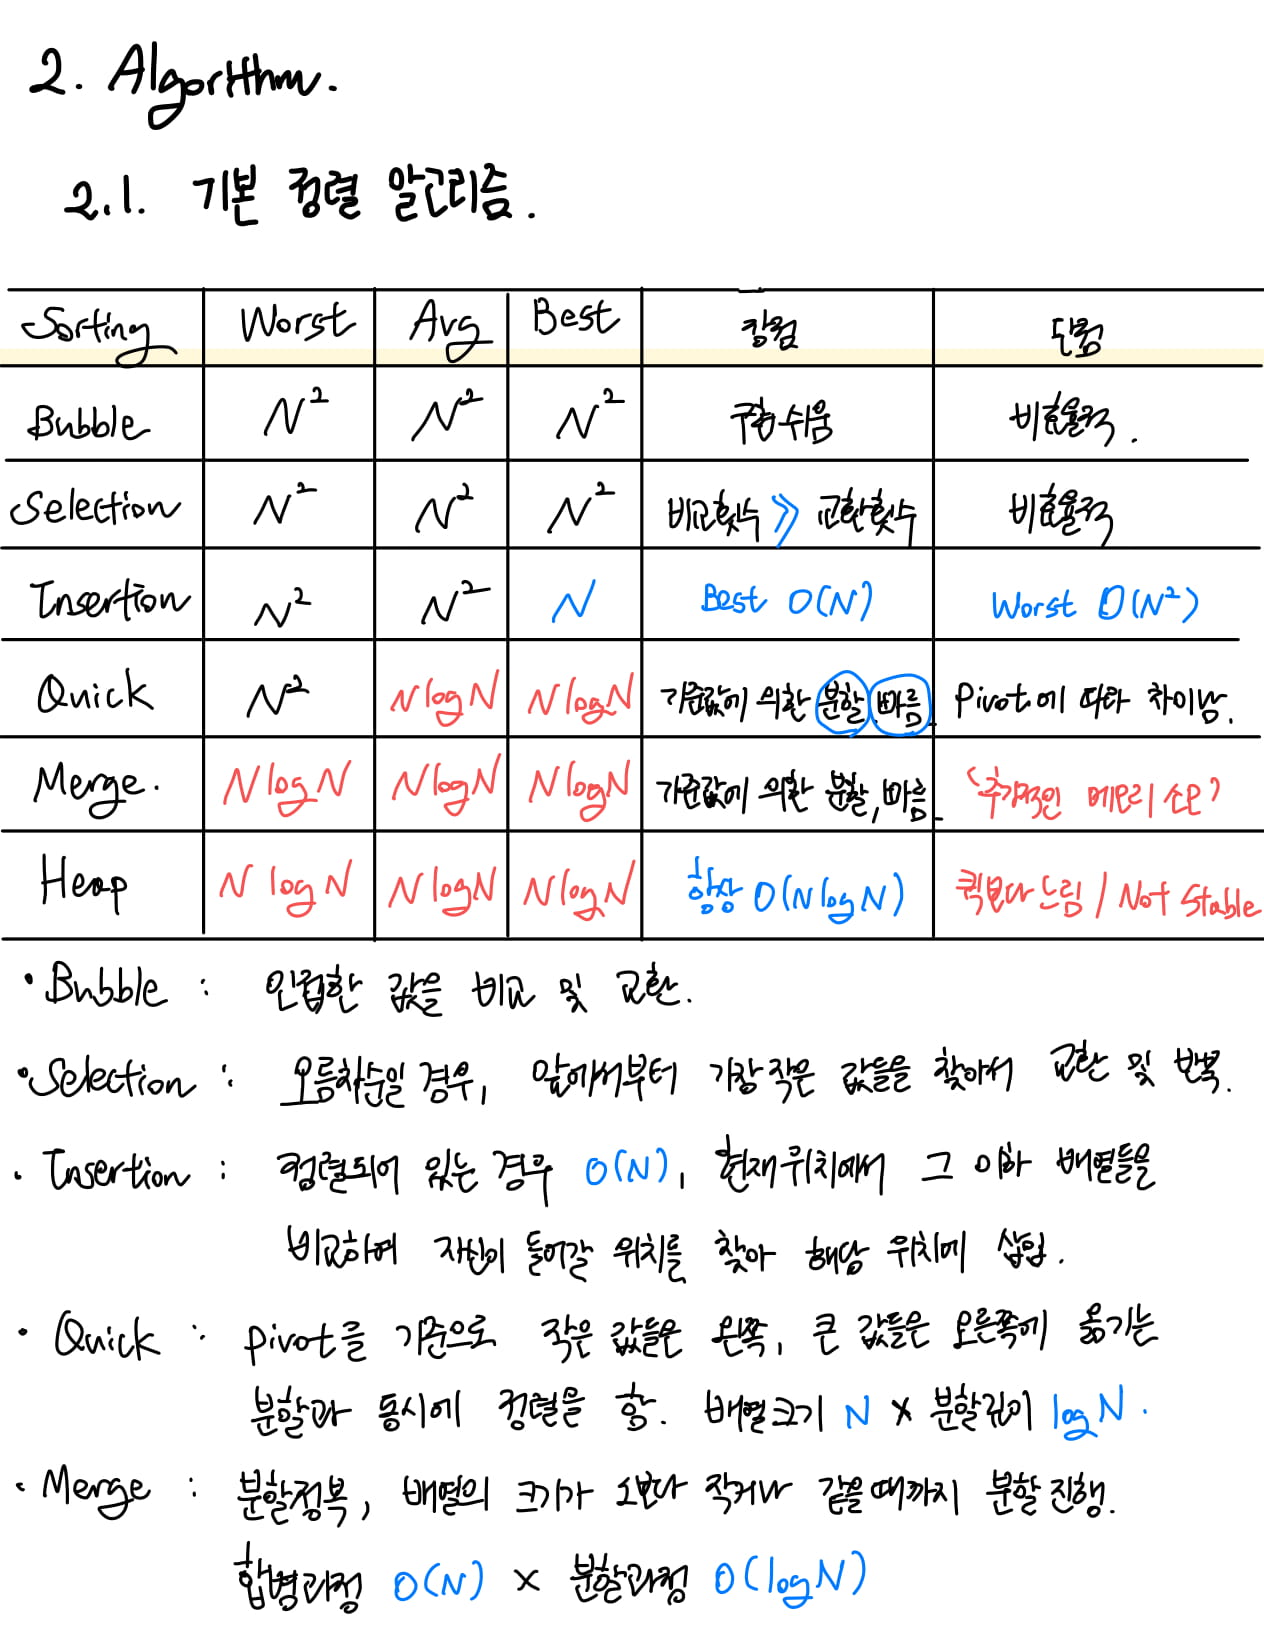 2. Algorithm.
2.1. 기본 정렬 알고리즘.
Sorting Worst Avg Best 장점 단점
Bubble N² N² N² 구현 쉬움 비효율적.
Selection N² N² N² 비교횟수 ≫ 교환횟수 비효율적
Insertion N² N² N Best O(N) Worst O(N²)
Quick N² NlogN NlogN 기준값에 의한 분할, 빠름. Pivot에 따라 차이남.
Merge. NlogN NlogN NlogN 기준값에 의한 분할, 빠름. '추가적인 메모리 소모'
Heap NlogN NlogN NlogN 항상 O(NlogN) 퀵보다 느림 / Not Stable
• Bubble : 인접한 값을 비교 및 교환.
• Selection : 오름차순일 경우, 앞에서부터 가장 작은 값들을 찾아서 교환 및 반복.
• Insertion : 정렬되어 있는 경우 O(N), 현재위치에서 그 이하 배열들을
비교하며 자신이 들어갈 위치를 찾아 해당 위치에 삽입.
• Quick : pivot를 기준으로 작은 값들은 왼쪽, 큰 값들은 오른쪽에 옮기는
분할과 동시에 정렬을 함. 배열크기 N × 분할깊이 logN.
• Merge : 분할정복, 배열의 크기가 1보다 작거나 같을때까지 분할 진행.
합병과정 O(N) × 분할과정 O(logN)